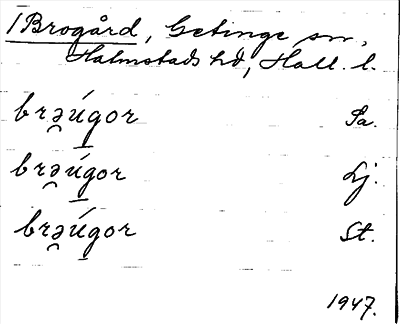 /Brogård, Getinge sn,
Halmstads hd, Hall. l.
brə̯úgo̱r Sa.
brə̯úgo̱r Lj.
brə̯úgo̱r St.
1947.